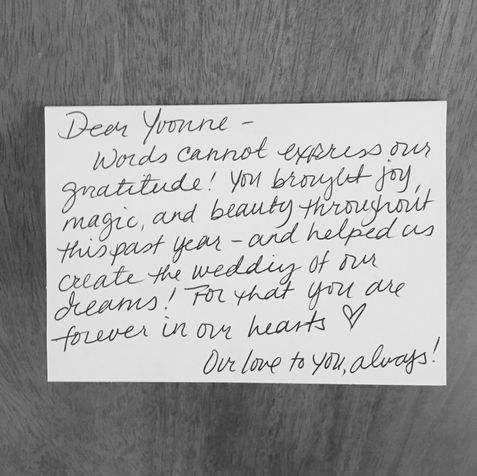 Dear Yvonne -
Words cannot express our
gratitude! You brought joy,
magic, and beauty throughout
this past year - and helped us
create the wedding of our
dreams! For that you are
forever in our hearts ♡
Our love to you, always!